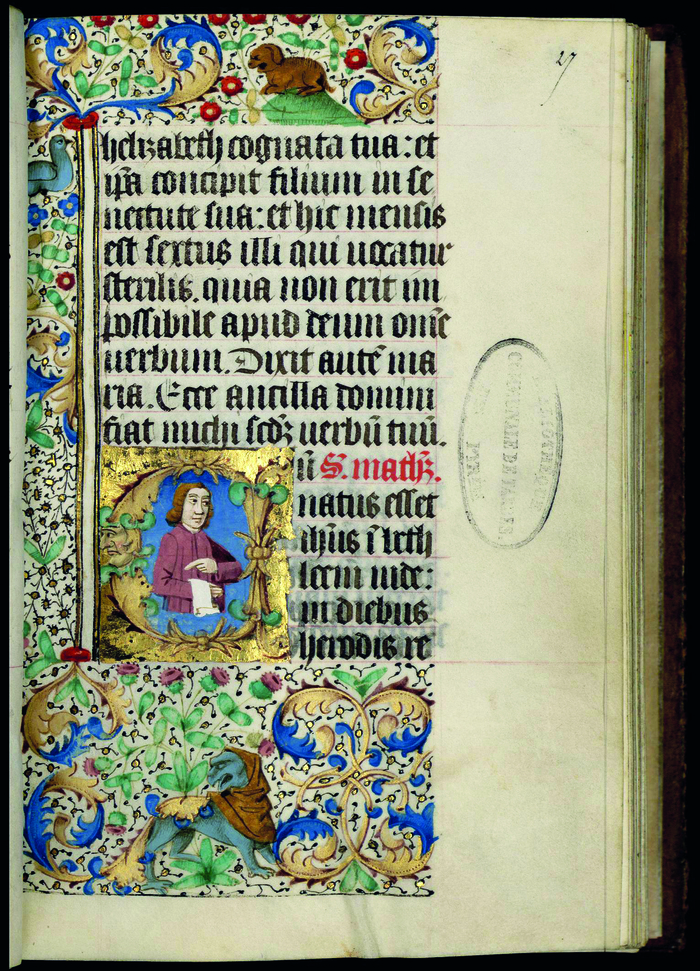 27
helizabeth cognata tua: et
ip̄a concipit filium in se
nectute sua: et hic mensis
est sextus illi qui uocatur
sterilis. quia non erit im
possibile apud deum om̄e
uerbum. Dixit autē ma
ria. Ecce ancilla domini
fiat michi scdꝫ uerbū tuū.
Cū S. mathꝫ.
natus esset
ih̄us ī beth
leem iude:
in diebus
herodis re